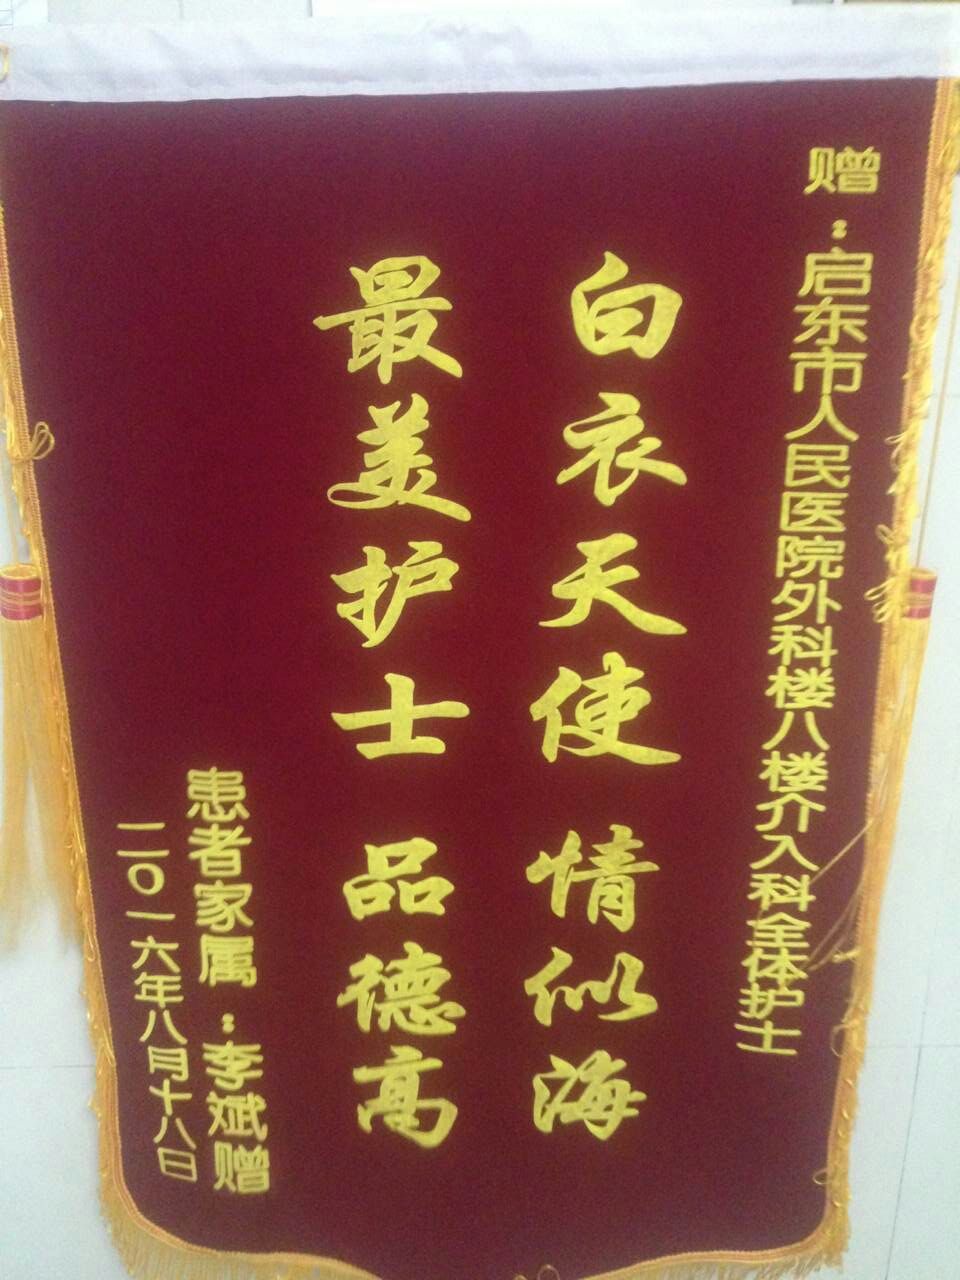 赠：启东市人民医院外科楼八楼介入科全体护士
白衣天使 情似海
最美护士 品德高
患者家属：李斌赠
二〇一六年八月十八日